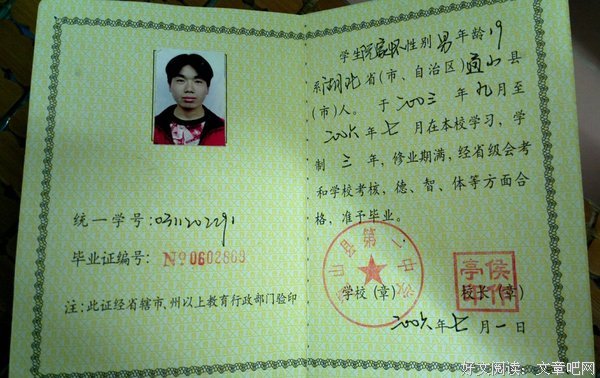 学生 性别男年龄19
系湖北省(市、自治区)通山县
(市)人。于二〇〇三年九月至
二〇〇六年七月在本校学习,学
制三年,修业期满,经省级会考
和学校考核,德、智、体等方面合
格,准予毕业。
山县第一中学
学校(章) 校长(章)
二〇〇六年七月一日
统一学号:0311202291
毕业证编号:№0602869
注:此证经省辖市、州以上教育行政部门验印
好文阅读: 文章吧网